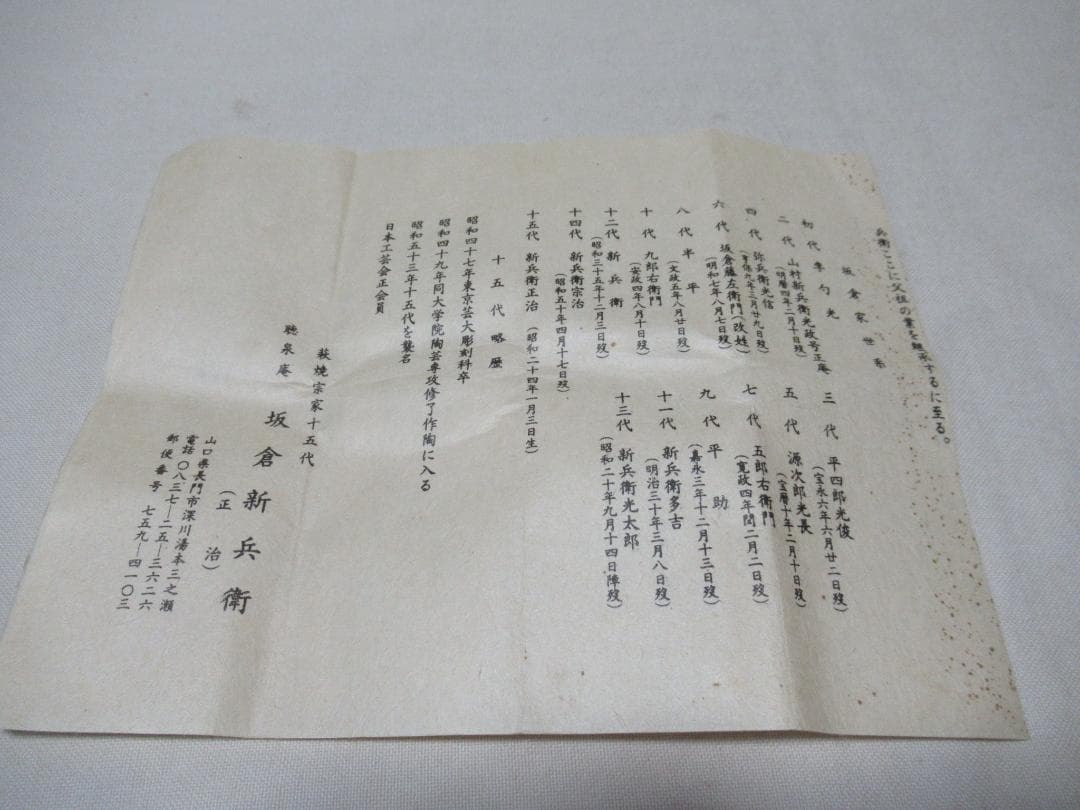 兵衛ここに父祖の業を継承するに至る。
坂倉家世系
初代 李勺光
二代 山村新兵衛光政号正庵
(明暦四年二月十日歿)
三代 平四郎光俊
(宝永六年六月廿二日歿)
四代 弥兵衛光信
(享保九年三月廿九日歿)
五代 源次郎光長
(宝暦十年二月十日歿)
六代 坂倉藤左衛門(改姓)
(明和七年八月七日歿)
七代 五郎右衛門
(寛政四年閏二月二日歿)
八代 半平
(文政五年八月廿日歿)
九代 平助
(嘉永三年十二月十三日歿)
十代 九郎右衛門
(安政四年八月十日歿)
十一代 新兵衛多吉
(明治三十年三月八日歿)
十二代 新兵衛
(昭和三十五年十二月三日歿)
十三代 新兵衛光太郎
(昭和二十年九月十四日陣歿)
十四代 新兵衛宗治
(昭和五十年四月十七日歿)
十五代 新兵衛正治 (昭和二十四年一月三日生)
十五代略歴
昭和四十七年東京芸大彫刻科卒
昭和四十九年同大学院陶芸専攻修了作陶に入る
昭和五十三年十五代を襲名
日本工芸会正会員
萩焼宗家十五代
聴泉庵 坂倉新兵衛
(正治)
山口県長門市深川湯本三之瀬
電話〇八三七―二五―三六二六
郵便番号 七五九―四一〇三